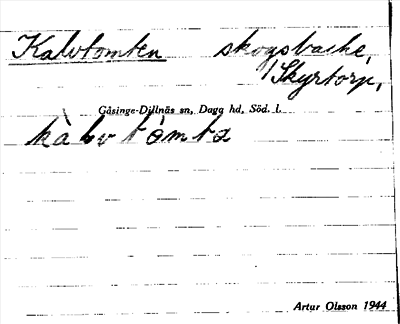 Kalvtomten skogsbacke,
/Skyrtorp,
Gåsinge-Dillnäs sn, Daga hd, Söd. l.
kàlvtómta
Artur Olsson 1944